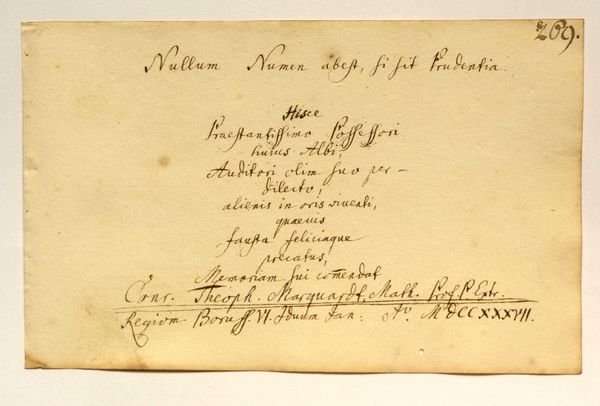 269.
Nullum Numen abest, si sit Prudentia.
Hisce
Praestantissimo Possessori
huius Albi,
Auditori olim suo per-
dilecto,
alienis in oris viventi,
quaevis
fausta feliciaque
precatus,
Memoriam sui com̄endat
Conr. Theoph. Marquardt, Math. Prof. P. Extr.
Regiom. Boruss. VI. Iduum Ian: Aō. MDCCXXXVII.